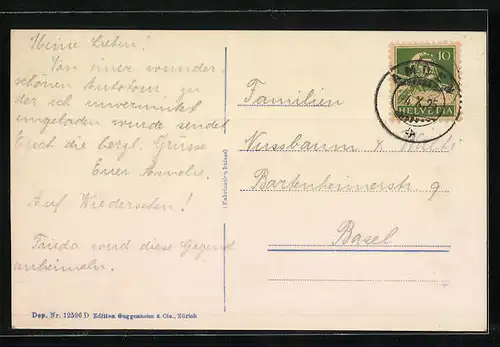 Meine Lieben!
Von einer wunder,
schönen Autotour, zu
der ich unverrückt
eingeladen wurde sendet
Euch die herzl. Grüsse
Eurer
Auf Wiedersehen!
Frieda wird diese Gegend
anheimeln.
10
4.X.25
HELVETIA
Familien
Nussbaum &
Bartenheimerstr 9
Basel
(Fabrication Suisse)
Dep. Nr. 12506 D Edition Guggenheim & Cie., Zürich